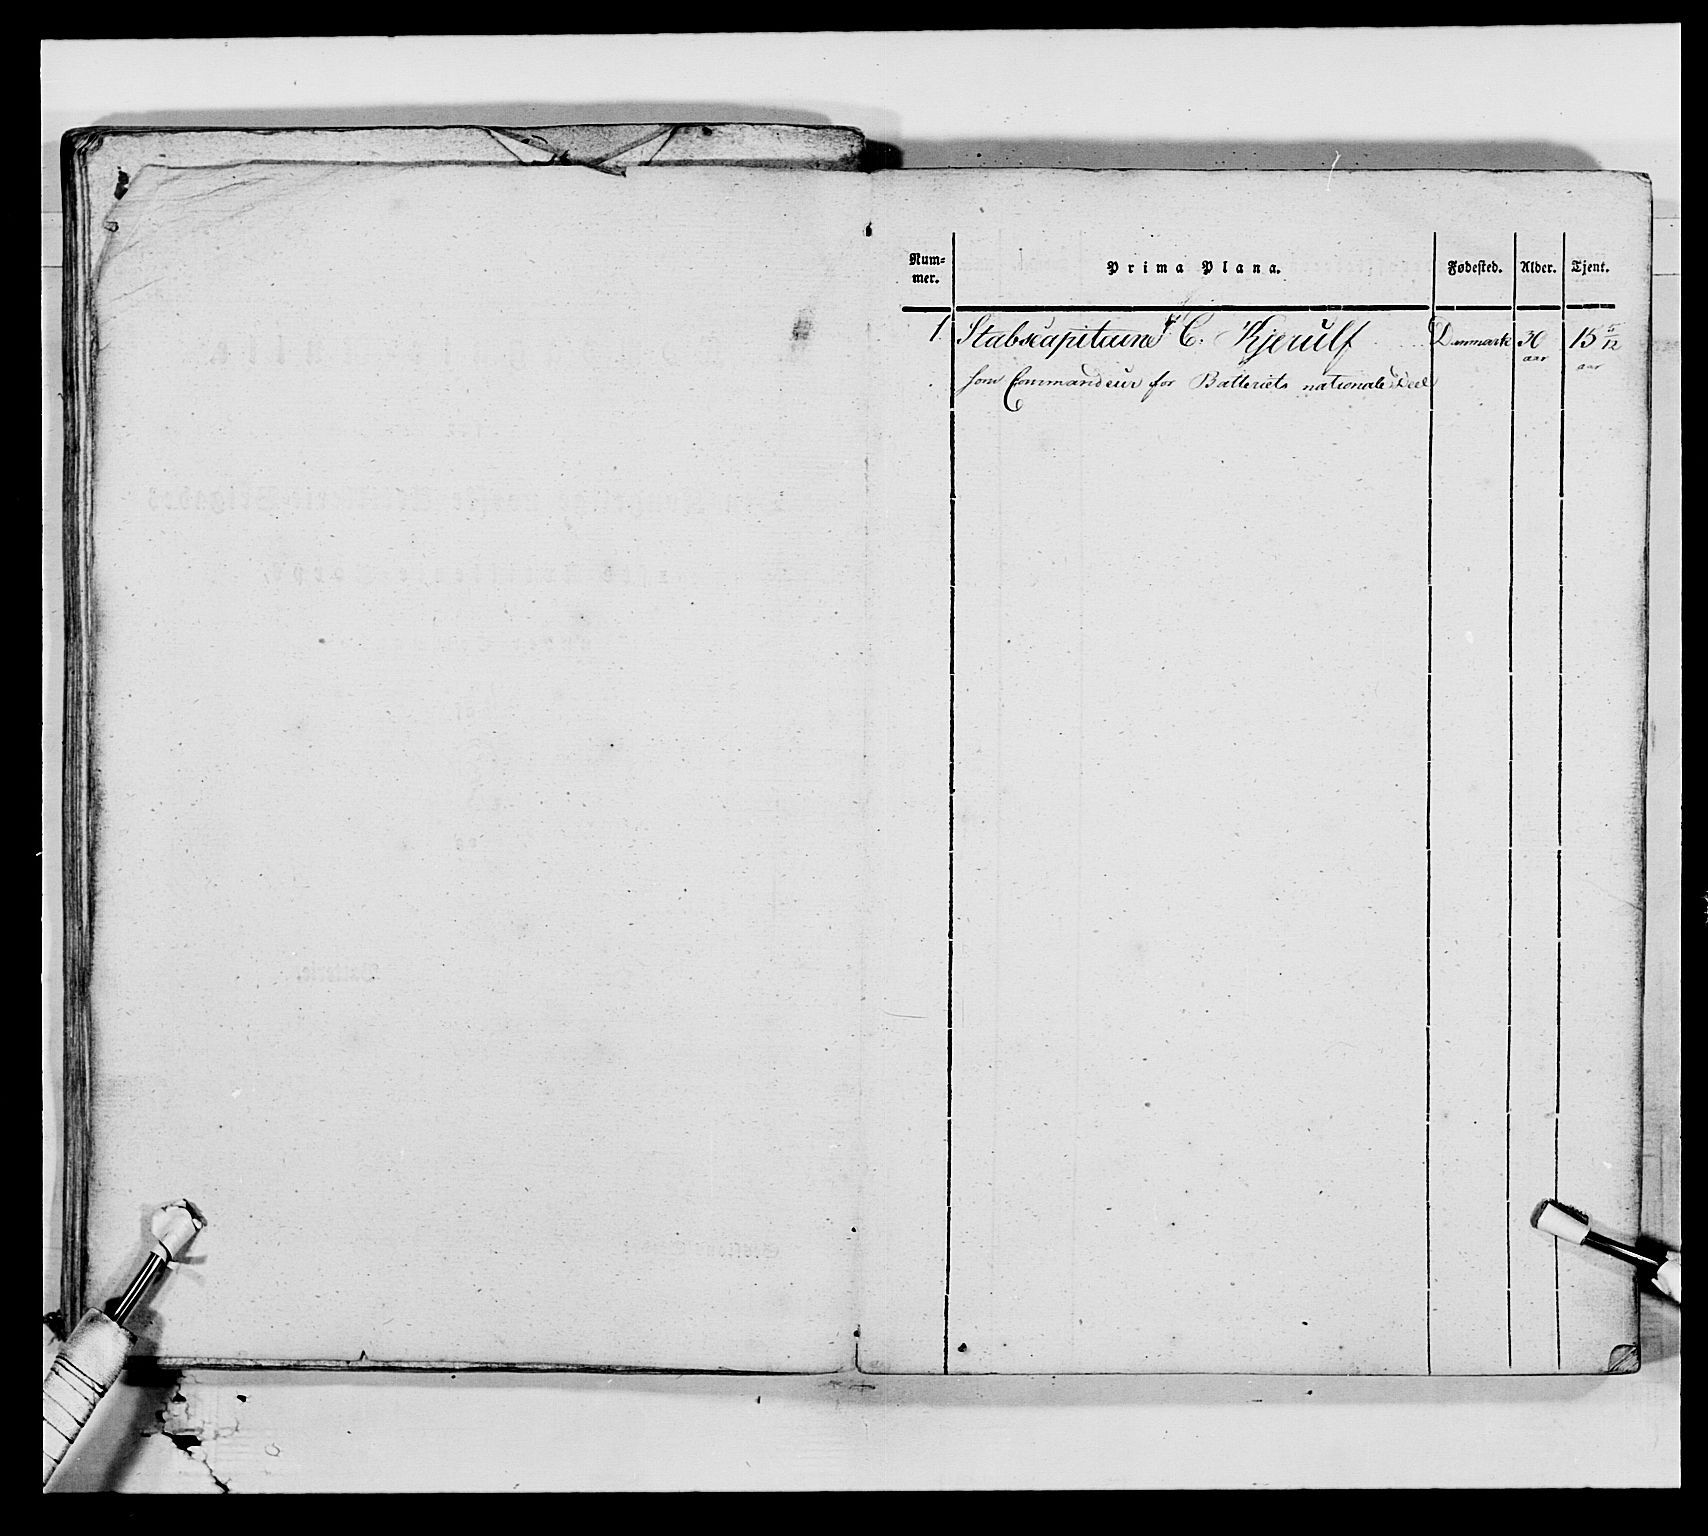 Num-
mer.
Prima Plana. Fødested. Alder. Tjent.
1. Stabscapitaine C. Kjerulf Danmark 30 15 5/12
aar aar
som Commandeur for Batteriets nationale Deel